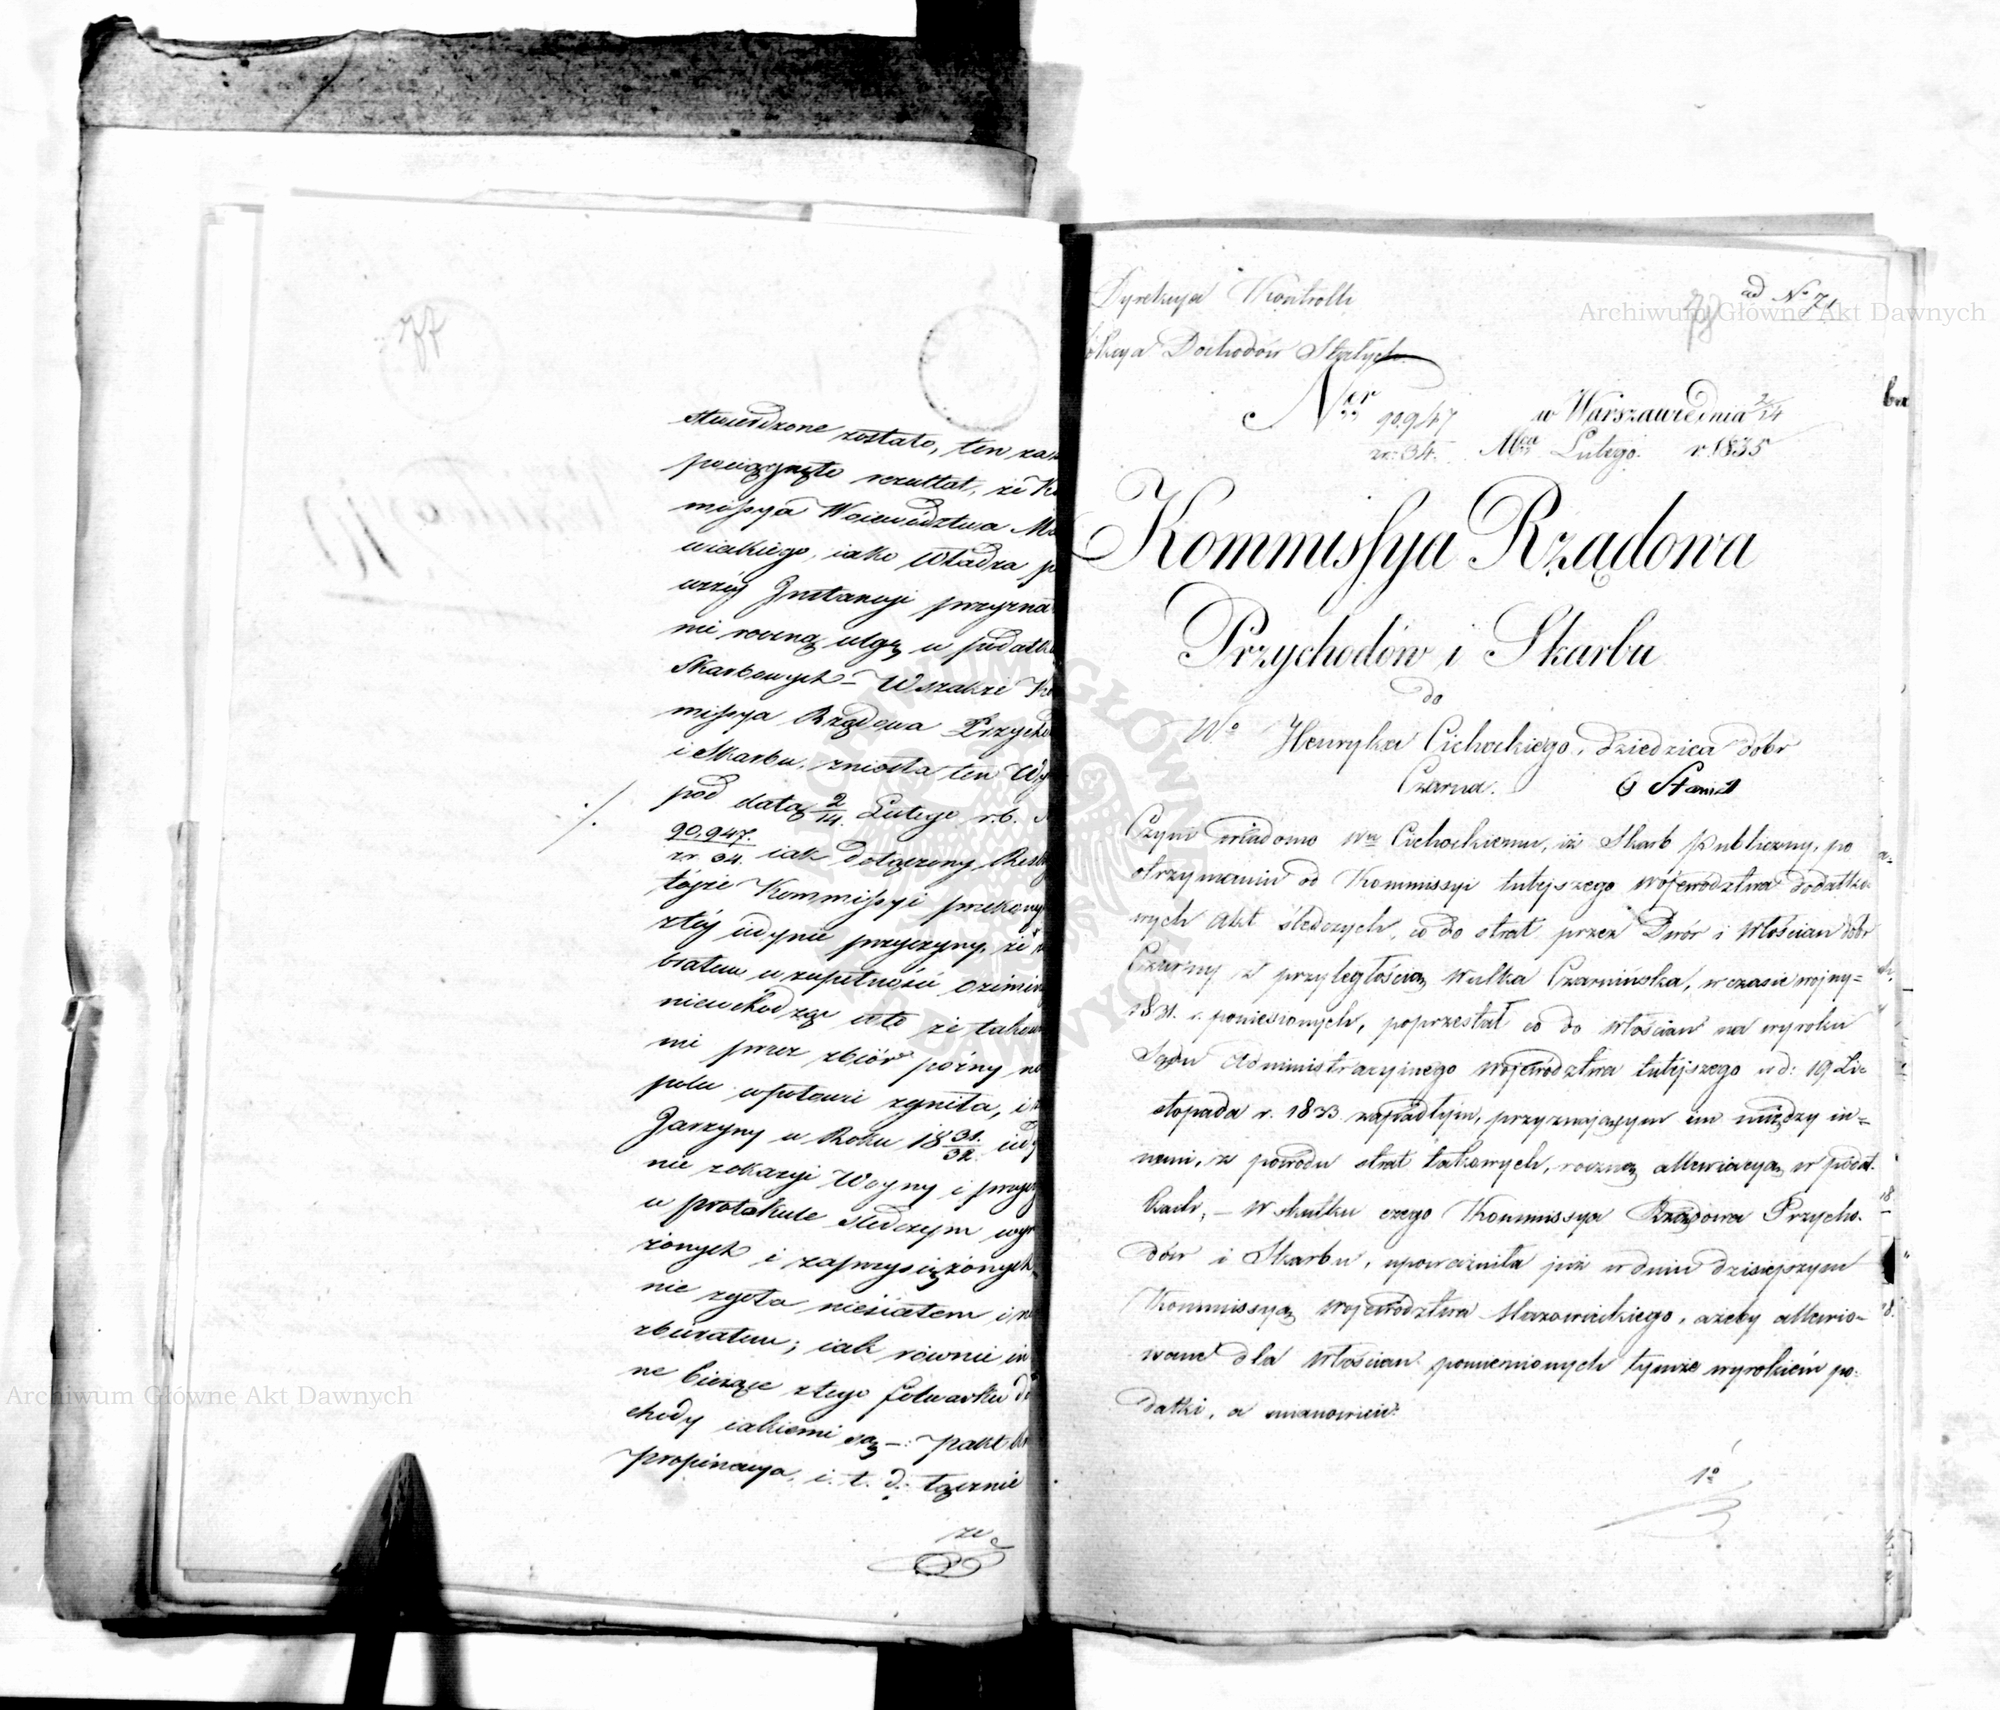 77
stwierdzone zostało, ten zaś
pociągnęło rezultat, że Ko
missya Woiewództwa Ma
wieckiego, iako Władza p
wszéy Instancyi przyzna
mi roczną ulgę w podatk
Skarbowych – Wszakże Ko
missya Rządowa Przycho
i Skarbu, zniosła ten Wy
pod datą 2/14. Lutego r.b. N
90,947./zr. 34. iak dołączony Resk
téyże Kommissyi przekony
ztéy iedynie przyczyny, że
brałem w zupełności ozimin
niewchodząc w to że takow
mi przez zbiór późny na
polu w połowie zgniła, i
Jarzyny w Roku 1831./32. iedy
nie z okazyi Woyny i przy
w protokule śledczym wyr
żonych i zaprzysiężonych
nie zgoła niesiałem i n
zbierałem; iak równie in
ne bieżące z tego folwarku do
chody iakiemi są –: pakt
propinacya, i. t. d: łącznie
ze
Dyrekcya Kontrolli
ad No 71
78
Sekcya Dochodów Stałych.
Ner 90,947/zr: 34.
w Warszawie dnia 2/14
Mca Lutego. r. 1835
Kommissya Rządowa
Przychodów i Skarbu
do
Wo Henryka Cichockiego, dziedzica dobr
Czarna.
Czyni wiadomo Wmu Cichockiemu, iż Skarb publiczny, po
otrzymaniu od Kommissyi tutejszego Województwa dodatko-
wych Akt śledczych, co do strat przez Dwór i Włościan dobr
Czarny z przyległością Wulka Czarnińska, w czasie wojny
1831. r. poniesionych, poprzestał co do Włościan na wyroku
Sądu Administracyjnego Województwa tutejszego w d: 19 Li-
stopada r. 1833 zapadłym, przyznającym im między in-
nemi, z powodu strat takowych, roczną allewiacyą w podat-
kach, – W skutku czego Kommissya Rządowa Przycho-
dów i Skarbu, upoważniła już w dniu dzisiejszym
Kommissyą Województwa Mazowieckiego, ażeby allewio-
wane dla Włościan pomienionych tymże wyrokiem po-
datki, a mianowicie:
1o
Archiwum Główne Akt Dawnych
Archiwum Główne Akt Dawnych